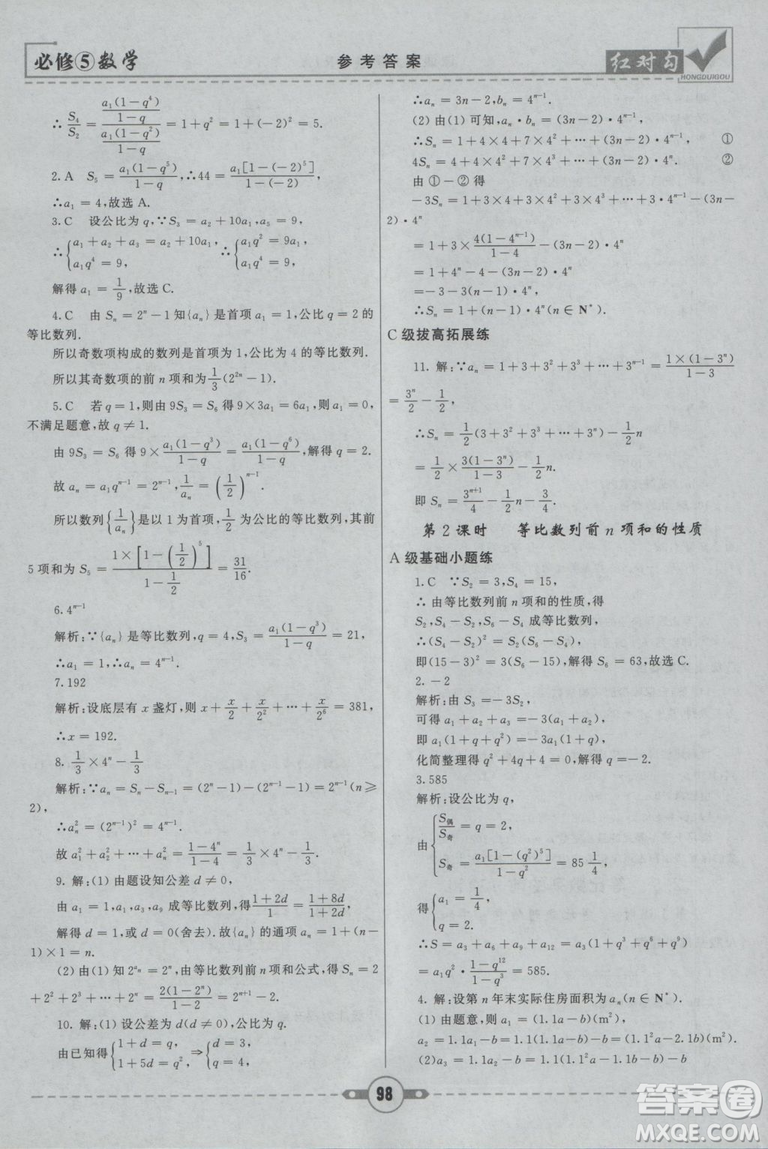 必修⑤数学
参考答案
红对勾
HONGDUIGOU
∴S₄/S₂ = [a₁(1-q⁴)/(1-q)]/[a₁(1-q²)/(1-q)] = 1+q² = 1+(-2)² = 5.
2.A S₅ = a₁(1-q⁵)/(1-q), ∴44 = a₁[1-(-2)⁵]/[1-(-2)],
∴a₁ = 4,故选 A.
3.C 设公比为 q, ∵S₃ = a₂+10a₁, a₅ = 9,
∴{a₁+a₂+a₃ = a₂+10a₁, a₁q⁴ = 9, ∴{q² = 9a₁, a₁q⁴ = 9,
解得 a₁ = 1/9,故选 C.
4.C 由 Sₙ = 2ⁿ-1 知{aₙ}是首项 a₁ = 1,公比 q = 2 的
等比数列.
所以奇数项构成的数列是首项为 1,公比为 4 的等比数列.
所以其奇数项的前 n 项和为 1/3(2²ⁿ-1).
5.C 若 q = 1,则由 9S₃ = S₆ 得 9×3a₁ = 6a₁,则 a₁ = 0,
不满足题意,故 q ≠ 1.
由 9S₃ = S₆ 得 9×a₁(1-q³)/(1-q) = a₁(1-q⁶)/(1-q),解得 q = 2.
故 aₙ = a₁qⁿ⁻¹ = 2ⁿ⁻¹, 1/aₙ = (1/2)ⁿ⁻¹.
所以数列{1/aₙ}是以 1 为首项, 1/2 为公比的等比数列,其前
5 项和为 S₅ = 1×[1-(1/2)⁵]/(1-1/2) = 31/16.
6.4ⁿ⁻¹
解析:∵{aₙ}是等比数列,q = 4, S₃ = a₁(1-q³)/(1-q) = 21,
∴a₁ = 1, ∴aₙ = 4ⁿ⁻¹.
7.192
解析:设底层有 x 盏灯,则 x+x/2+x/2²+⋯+x/2⁶ = 381,
∴x = 192.
8. 1/3×4ⁿ-1/3
解析:∵aₙ = Sₙ-Sₙ₋₁ = (2ⁿ-1)-(2ⁿ⁻¹-1) = 2ⁿ⁻¹(n≥
2),
∴aₙ² = (2ⁿ⁻¹)² = 4ⁿ⁻¹.
故 a₁²+a₂²+⋯+aₙ² = (1-4ⁿ)/(1-4) = 1/3×4ⁿ-1/3.
9. 解:(1) 由题设知公差 d ≠ 0,
由 a₁ = 1, a₁, a₃, a₉ 成等比数列,得(1+2d)/1 = (1+8d)/(1+2d),
解得 d = 1, d = 0(舍去).故{aₙ}的通项 aₙ = 1+(n-
1)×1 = n.
(2) 由(1) 知 2^aₙ = 2ⁿ,由等比数列前 n 项和公式,得 Sₙ = 2
+2²+2³+⋯+2ⁿ = 2(1-2ⁿ)/(1-2) = 2ⁿ⁺¹-2.
10. 解:(1) 设公差为 d(d ≠ 0),公比为 q.
由已知得{1+d = q, 1+5d = q², ⇒{d = 3, q = 4,
∴aₙ = 3n-2, bₙ = 4ⁿ⁻¹.
(2) 由(1) 可知,aₙ·bₙ = (3n-2)×4ⁿ⁻¹
∴Sₙ = 1+4×4+7×4²+⋯+(3n-2)×4ⁿ⁻¹, ①
4Sₙ = 4+4×4²+7×4³+⋯+(3n-2)·4ⁿ. ②
由 ①-② 得
-3Sₙ = 1+3×4+3×4²+3×4³+⋯+3×4ⁿ⁻¹-(3n-
2)·4ⁿ
= 1+3×4(1-4ⁿ⁻¹)/(1-4)-(3n-2)·4ⁿ
= 1+4ⁿ-4-(3n-2)·4ⁿ
∴Sₙ = 1+(n-1)·4ⁿ(n∈N*).
C 级拔高拓展练
11. 解:∵aₙ = 1+3+3²+⋯+3ⁿ⁻¹ = 1×(1-3ⁿ)/(1-3)
= 3ⁿ/2-1/2,
∴Sₙ = 1/2(3+3²+⋯+3ⁿ)-1/2n
= 1/2×3(1-3ⁿ)/(1-3)-n/2,
即 Sₙ = 3ⁿ⁺¹/4-n/2-3/4.
第 2 课时 等比数列前 n 项和的性质
A 级基础小题练
1.C ∵S₂ = 3, S₄ = 15,
∴由等比数列前 n 项和的性质,得
S₂, S₄-S₂, S₆-S₄ 成等比数列,
∴(S₄-S₂)² = S₂(S₆-S₄),
即(15-3)² = 3(S₆-15),解得 S₆ = 63,故选 C.
2. -2
解析:由 S₃ = -3S₂,
可得 a₁+a₂+a₃ = -3(a₁+a₂),
即 a₁(1+q+q²) = -3a₁(1+q),
化简整理得 q²+4q+4 = 0,解得 q = -2.
3.585
解析:设公比为 q,
由{S偶/S奇 = q = 2, S奇 = a₁[1-(q²)⁵]/(1-q²) = 85 1/4,
得{a₁ = 1/4, q = 2.
∴S = a₃+a₆+a₉+a₁₂ = a₃·(1-q¹²)/(1-q³) = 585.
4. 解:设第 n 年末实际住房面积为 aₙ(n∈N*).
(1) 由题意,可得 a₁ = (1.1a-b)(m²),
a₂ = 1.1a₁-b = 1.1(1.1a-b)-b = (1.21a-2.1b)(m²).
(2)a₃ = 1.1a₂-b = 1.1(1.1²a-1.1b-b)-b
98
答案圈
MXQE.COM